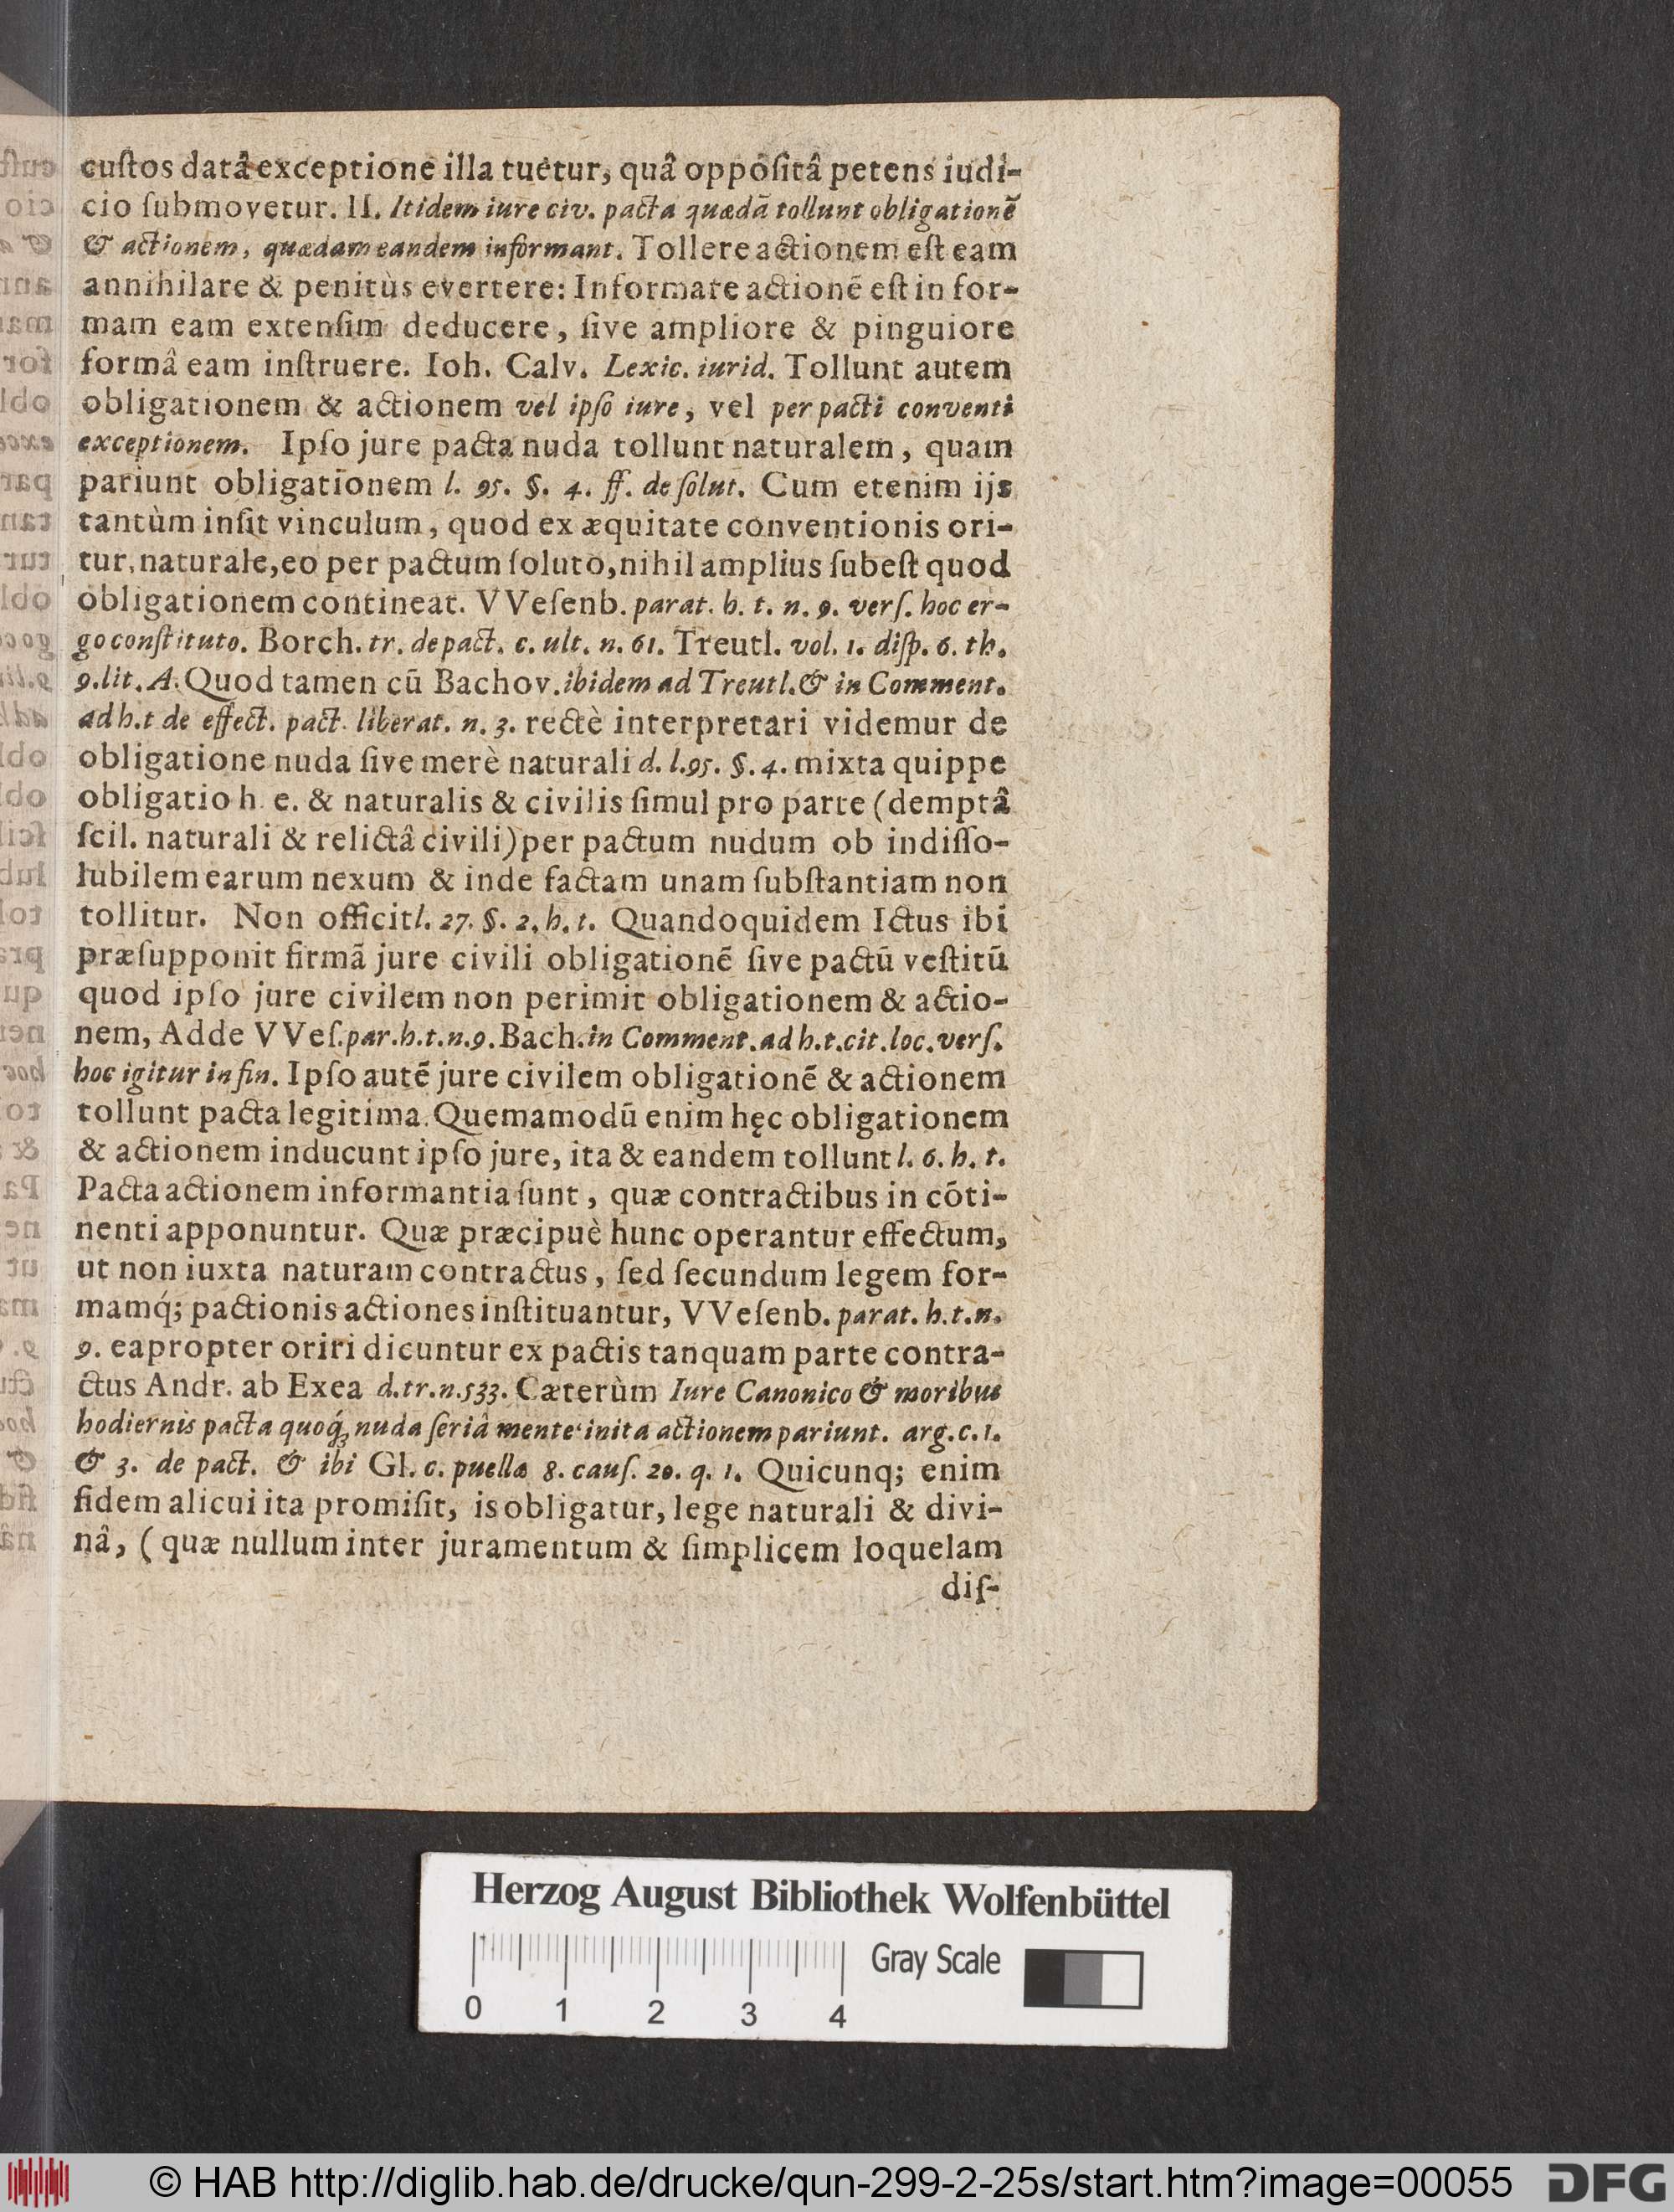 cuſtos datâ exceptione illa tuetur, quâ oppoſitâ petens iudi-
cio ſubmovetur. II. Itidem iure civ. pacta quædā tollunt obligationē
& actionem, quædam eandem informant. Tollere actionem eſt eam
annihilare & penitùs evertere: Informare actionē eſt in for-
mam eam extenſim deducere, ſive ampliore & pinguiore
formâ eam inſtruere. Ioh. Calv. Lexic. iurid. Tollunt autem
obligationem & actionem vel ipſo iure, vel per pacti conventi
exceptionem. Ipſo jure pacta nuda tollunt naturalem, quam
pariunt obligationem l. 95. §. 4. ff. de ſolut. Cum etenim ijs
tantùm inſit vinculum, quod ex æquitate conventionis ori-
tur, naturale, eo per pactum ſoluto, nihil amplius ſubeſt quod
obligationem contineat. VVeſenb. parat. h. t. n. 9. verſ. hoc er-
go conſtituto. Borch. tr. de pact. c. ult. n. 61. Treutl. vol. 1. diſp. 6. th.
9. lit. A. Quod tamen cū Bachov. ibidem ad Treutl. & in Comment.
ad h.t de effect. pact. liberat. n. 3. rectè interpretari videmur de
obligatione nuda ſive merè naturali d. l. 95. §. 4. mixta quippe
obligatio h. e. & naturalis & civilis ſimul pro parte (demptâ
ſcil. naturali & relictâ civili) per pactum nudum ob indiſſo-
lubilem earum nexum & inde factam unam ſubſtantiam non
tollitur. Non officit l. 27. §. 2. h. t. Quandoquidem Ictus ibi
præſupponit firmā jure civili obligationē ſive pactū veſtitū
quod ipſo jure civilem non perimit obligationem & actio-
nem, Adde VVeſ. par. h.t.n.9. Bach. in Comment. ad h.t. cit. loc. verſ.
hoc igitur in fin. Ipſo autē jure civilem obligationē & actionem
tollunt pacta legitima. Quemamodū enim hęc obligationem
& actionem inducunt ipſo jure, ita & eandem tollunt l. 6. h. t.
Pacta actionem informantia ſunt, quæ contractibus in cōti-
nenti apponuntur. Quæ præcipuè hunc operantur effectum,
ut non iuxta naturam contractus, ſed ſecundum legem for-
mamq́; pactionis actiones inſtituantur, VVeſenb. parat. h.t.n.
9. eapropter oriri dicuntur ex pactis tanquam parte contra-
ctus Andr. ab Exea d. tr. n. 533. Cæterùm Iure Canonico & moribus
hodiernis pacta quoq́; nuda ſeriâ mente inita actionem pariunt. arg. c. 1.
& 3. de pact. & ibi Gl. c. puella 8. cauſ. 20. q. 1. Quicunq; enim
fidem alicui ita promiſit, is obligatur, lege naturali & divi-
nâ, (quæ nullum inter juramentum & ſimplicem loquelam
diſ-
Herzog August Bibliothek Wolfenbüttel
0 1 2 3 4 Gray Scale
© HAB http://diglib.hab.de/drucke/qun-299-2-25s/start.htm?image=00055 DFG